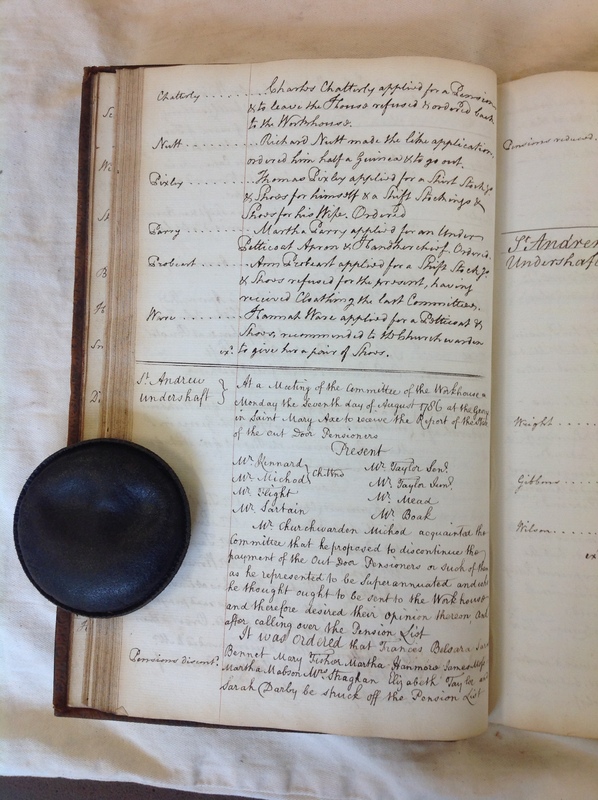 Chatterly . . . . . . . Charles Chatterly applied for a Pension
& to leave the House refused & ordered back
to the Workhouse.
Nutt . . . . . . . Richard Nutt made the like application,
ordered him half a Guinea & to go out.
Pixley . . . . . . . Thomas Pixley applied for a Shirt Stockgs
& Shoes for himself & a Shift Stockings &
Shoes for his Wife. Ordered
Parry . . . . . . . Martha Parry applied for an Under
Petticoat Apron & Handkerchief. Ordered
Probeart . . . . . . . Ann Probeart applied for a Shift Stockgs
& Shoes refused for the present, having
received Cloathing the last Committee.
Ware . . . . . . . Hannah Ware applied for a Petticoat &
Shoes, recommended to the Churchwarden
exd. to give her a pair of Shoes.
St. Andrew
Undershaft
At a Meeting of the Committee of the Workhouse on
Monday the Seventh day of August 1786 at the
in Saint Mary Axe to receive the Report of the
of the Out Door Pensioners
Present
Mr. Kinnard
Mr. Michod
Chwns
Mr. Flight
Mr. Sartain
Mr. Taylor Senr.
Mr. Taylor Junr.
Mr. Mead
Mr. Boak
Mr. Churchwarden Michod acquainted the
Committee that he proposed to discontinue the
payment of the Out Door Pensioners or such of them
as he represented to be Superannuated and
he thought ought to be sent to the Workhouse
and therefore desired their opinion thereon And
after calling over the Pension List
It was ordered that Frances Belsara Sarah
Pensions discontd. Bennet Mary Fisher Martha Hanmore James
Martha Mabson Mrs. Straghan Elizabeth Taylor and
Sarah Darby be struck off the Pension List
Pensions reduced.
St. Andrew
Undershaft
Wright . . . .
Gibbons . . . .
Wilson . . . .
ex